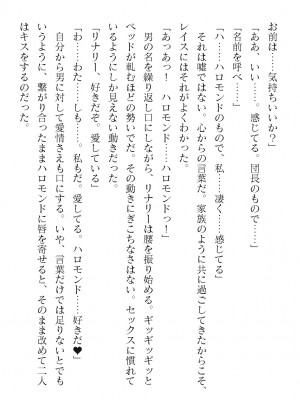 お前は……気持ちいいか？」
「ああ、いい……。感じてる。団長のもので……」
「名前を呼べ……」
「ハ……ハロモンドのもので、私……凄く……感じてる」
それは嘘ではない。心からの言葉だ。家族のように共に過ごしてきたからこそ、
レイスにはそれがよくわかった。
「あっあっ！　ハロモンド……ハロモンドっ！」
男の名を繰り返し口にしながら、リナリーは腰を振り始める。ギッギッギッと
ベッドが軋むほどの勢いでだ。その動きにぎこちなさはない。セックスに慣れて
いるようにしか見えない動きだった。
「リナリー、好きだぞ。愛している」
「わ……わた……しも……。私もだ。愛してる。ハロモンド……好きだ♥」
自分から男に対して愛情さえも口にする。いや、言葉だけでは足りないとでも
いうように、繋がり合ったままハロモンドに唇を寄せると、そのまま改めて二人
はキスをするのだった。